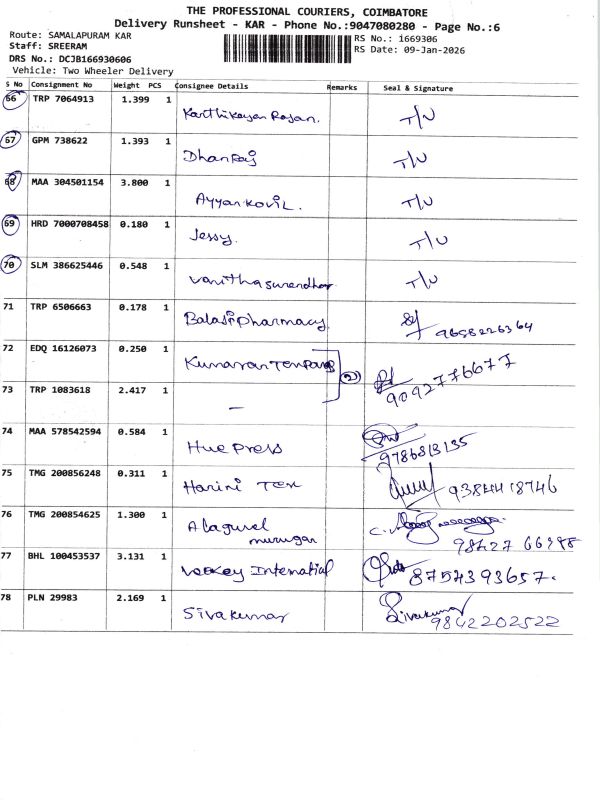 THE PROFESSIONAL COURIERS, COIMBATORE
Delivery Runsheet - KAR - Phone No.:9047080280 - Page No.:6
Route: SAMALAPURAM KAR
Staff: SREERAM
DRS No.: DCJB166930606
Vehicle: Two Wheeler Delivery
RS No.: 1669306
RS Date: 09-Jan-2026
S No Consignment No Weight PCS Consignee Details Remarks Seal & Signature
66 TRP 7064913 1.399 1
Karthikeyan Rajan. T/U
67 GPM 738622 1.393 1
Dhanraj T/U
68 MAA 304501154 3.800 1
Ayyankovil. T/U
69 HRD 7000708458 0.180 1
Jessy. T/U
70 SLM 386625446 0.548 1
Vanitha surendhar T/U
71 TRP 6506663 0.178 1
Balaji pharmacy 9658226364
72 EDQ 16126073 0.250 1
Kumaran (2) 9092776677
73 TRP 1083618 2.417 1
–
74 MAA 578542594 0.584 1
Hue press 9786813135
75 TMG 200856248 0.311 1
Harini Tex 9384418746
76 TMG 200854625 1.300 1
Alagurel
murugan
77 BHL 100453537 3.131 1
8754393657.
78 PLN 29983 2.169 1
Sivakumar Sivakumar
9842202522